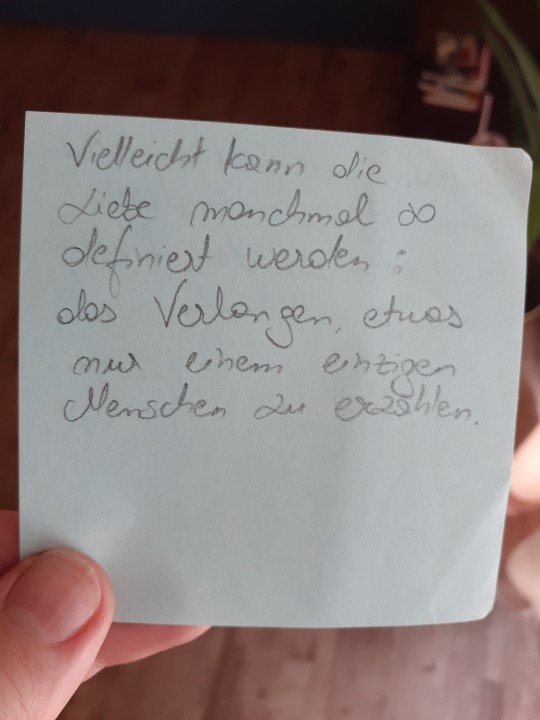 Vielleicht kann die
Liebe manchmal so
definiert werden:
das Verlangen, etwas
nur einem einzigen
Menschen zu erzählen.